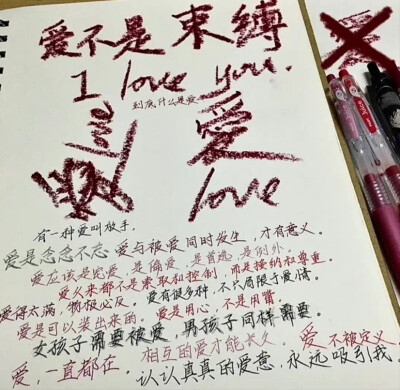 爱不是束缚
I love you.
到底什么是爱
love
爱
love
有一种爱叫放手.
爱是念念不忘 爱与被爱同时发生,才有意义.
爱应该是宽爱.是偏爱,是首选,是例外.
爱从来都不是索取和控制,而是接纳和尊重.
爱得太满,物极必反.爱有很多种,不只局限于爱情.
爱是可以装出来的.爱是用心,不是用胃.
女孩子需要被爱,男孩子同样需要.
爱,一直都在.相互的爱才能长久.爱不被定义.
认认真真的爱意,永远吸引我.